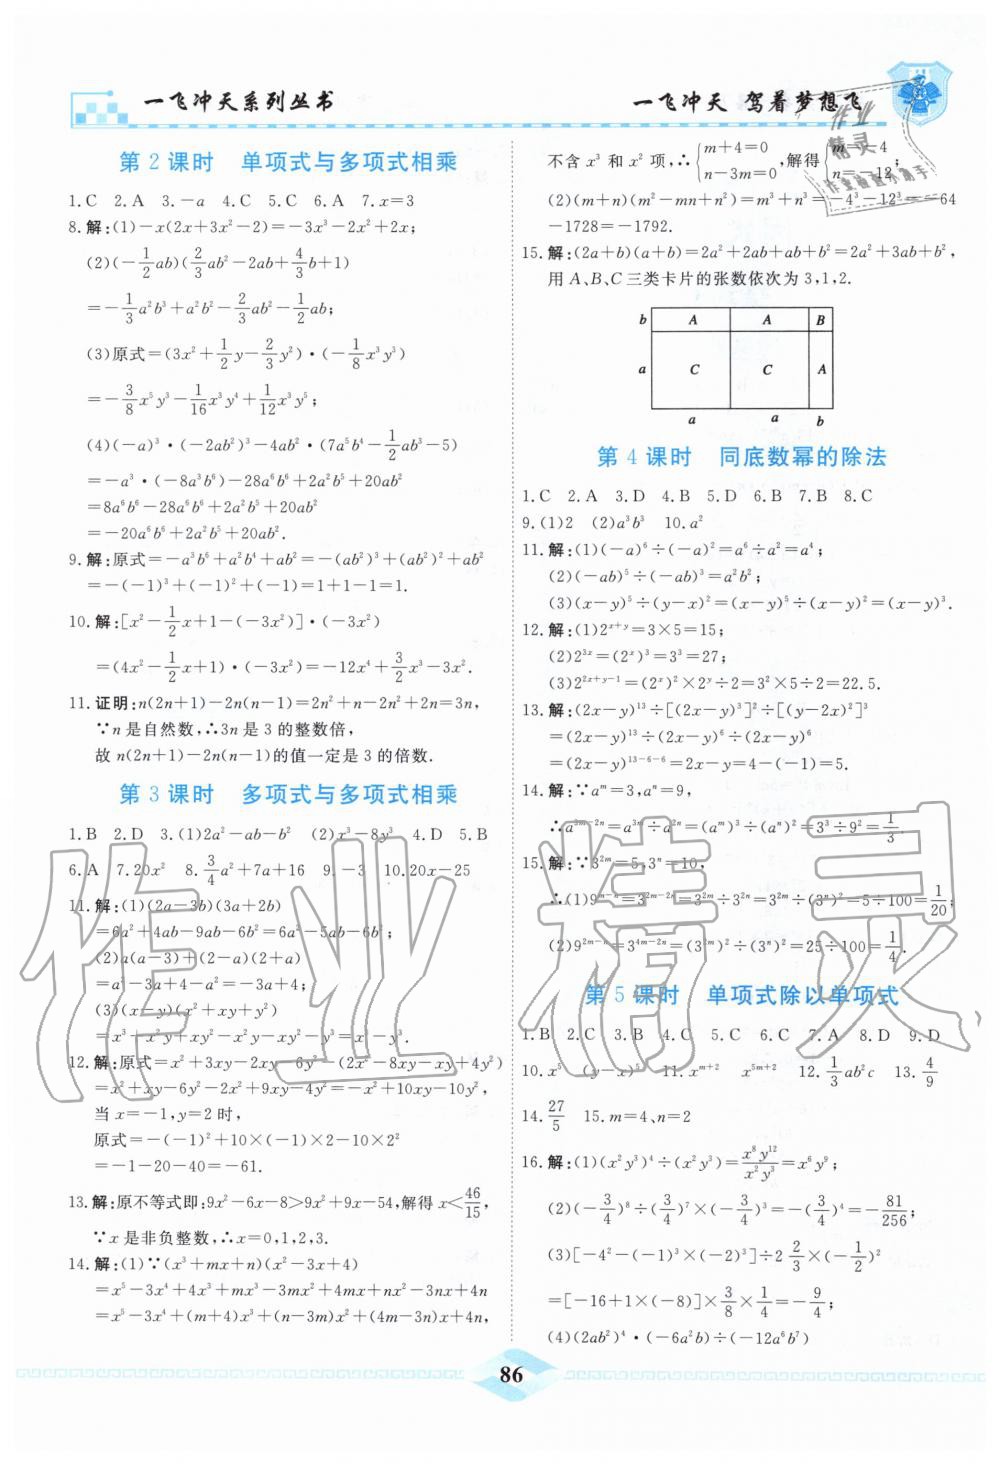 一飞冲天系列丛书
一飞冲天 驾着梦想飞
第2课时 单项式与多项式相乘
1.C 2.A 3.-a 4.C 5.C 6.A 7.x=3
8.解:(1)-x(2x+3x²-2)=-3x³-2x²+2x;
(2)(-1/2ab)(2/3ab²-2ab+4/3b+1)
=-1/3a²b³+a²b²-2/3ab²-1/2ab;
(3)原式=(3x²+1/2y-2/3y²)·(-1/8x³y³)
=-3/8x⁵y³-1/16x³y⁴+1/12x³y⁵;
(4)(-a)³·(-2ab²)³-4ab²·(7a⁵b⁴-1/2ab³-5)
=-a³·(-8a³b⁶)-28a⁶b⁶+2a²b⁵+20ab²
=8a⁶b⁶-28a⁶b⁶+2a²b⁵+20ab²
=-20a⁶b⁶+2a²b⁵+20ab²
9.解:原式=-a³b⁶+a²b⁴+ab²=-(ab²)³+(ab²)²+ab²
=-(-1)³+(-1)²+(-1)=1+1-1=1.
10.解:[x²-1/2x+1-(-3x²)]·(-3x²)
=(4x²-1/2x+1)·(-3x²)=-12x⁴+3/2x³-3x².
11.证明:n(2n+1)-2n(n-1)=2n²+n-2n²+2n=3n,
∵n是自然数,∴3n是3的整数倍,
故n(2n+1)-2n(n-1)的值一定是3的倍数.
第3课时 多项式与多项式相乘
1.B 2.D 3.(1)2a²-ab-b² (2)x³-8y³ 4.D 5.B
6.A 7.20x² 8.3/4a²+7a+16 9.-3 10.20x-25
11.解:(1)(2a-3b)(3a+2b)
=6a²+4ab-9ab-6b²=6a²-5ab-6b²;
(2)a(a-3)+(2-a)(2+a)
=a²-3a+4-a²=-3a+4;
(3)(x-y)(x²+xy+y²)
=x³+x²y+xy²-x²y-xy²-y³=x³-y³.
12.解:原式=x²+3xy-2xy-6y²-(2x²-8xy-xy+4y²)
=x²+xy-6y²-2x²+9xy-4y²=-x²+10xy-10y²,
当x=-1,y=2时,
原式=-(-1)²+10×(-1)×2-10×2²
=-1-20-40=-61.
13.解:原不等式即:9x²-6x-8>9x²+9x-54,解得x<46/15,
∵x是非负整数,∴x=0,1,2,3.
14.解:(1)∵(x³+mx+n)(x²-3x+4)
=x⁵-3x⁴+4x³+mx³-3mx²+4mx+nx²-3nx+4n
=x⁵-3x⁴+(m+4)x³+(n-3m)x²+(4m-3n)x+4n,
不含x³和x²项,∴{m+4=0 n-3m=0,解得{m=-4 n=-12;
(2)(m+n)(m²-mn+n²)=m³+n³=-4³-12³=-64
-1728=-1792.
15.解:(2a+b)(a+b)=2a²+2ab+ab+b²=2a²+3ab+b²,
用A、B、C三类卡片的张数依次为3,1,2.
b A A B
a C C A
a a b
第4课时 同底数幂的除法
1.C 2.A 3.D 4.B 5.D 6.B 7.B 8.C
9.(1)2 (2)a³b³ 10.a²
11.解:(1)(-a)⁶÷(-a)²=a⁶÷a²=a⁴;
(2)(-ab)⁵÷(-ab)³=a²b²;
(3)(x-y)⁵÷(y-x)²=(x-y)⁵÷(x-y)²=(x-y)³.
12.解:(1)2ˣ⁺ʸ=3×5=15;
(2)2³ˣ=(2ˣ)³=3³=27;
(3)2²ˣ⁺ʸ⁻¹=(2ˣ)²×2ʸ÷2=3²×5÷2=22.5.
13.解:(2x-y)¹³÷[(2x-y)³]²÷[(y-2x)²]³
=(2x-y)¹³÷(2x-y)⁶÷(2x-y)⁶
=(2x-y)¹³⁻⁶⁻⁶=2x-y=4-(-1)=5.
14.解:∵aᵐ=3,aⁿ=9,
∴a³ᵐ⁻²ⁿ=a³ᵐ÷a²ⁿ=(aᵐ)³÷(aⁿ)²=3³÷9²=1/3.
15.解:∵3²ᵐ=5,3ⁿ=10,
∴(1)9ᵐ⁻ⁿ=3²ᵐ⁻²ⁿ=3²ᵐ÷3²ⁿ=3²ᵐ÷(3ⁿ)²=5÷100=1/20;
(2)9²ᵐ⁻ⁿ=3⁴ᵐ⁻²ⁿ=(3²ᵐ)²÷(3ⁿ)²=25÷100=1/4.
第5课时 单项式除以单项式
1.B 2.C 3.B 4.C 5.C 6.C 7.A 8.D 9.D
10.x⁵ (y-x)⁵ 11.xᵐ⁺² x⁵ᵐ⁺² 12.1/3ab²c 13.4/9
14.27/5 15.m=4、n=2
16.解:(1)(x²y³)⁴÷(x²y³)=x⁸y¹²/x²y³=x⁶y⁹;
(2)(-3/4)⁸÷(3/4)⁷×(-3/4)³=-(3/4)⁴=-81/256;
(3)[-4²-(-1)³×(-2)³]÷2 2/3×(-1/2)²
=[-16+1×(-8)]×3/8×1/4=-9/4;
(4)(2ab²)⁴·(-6a²b)÷(-12a⁶b⁷)
86
作业精灵
作业精灵